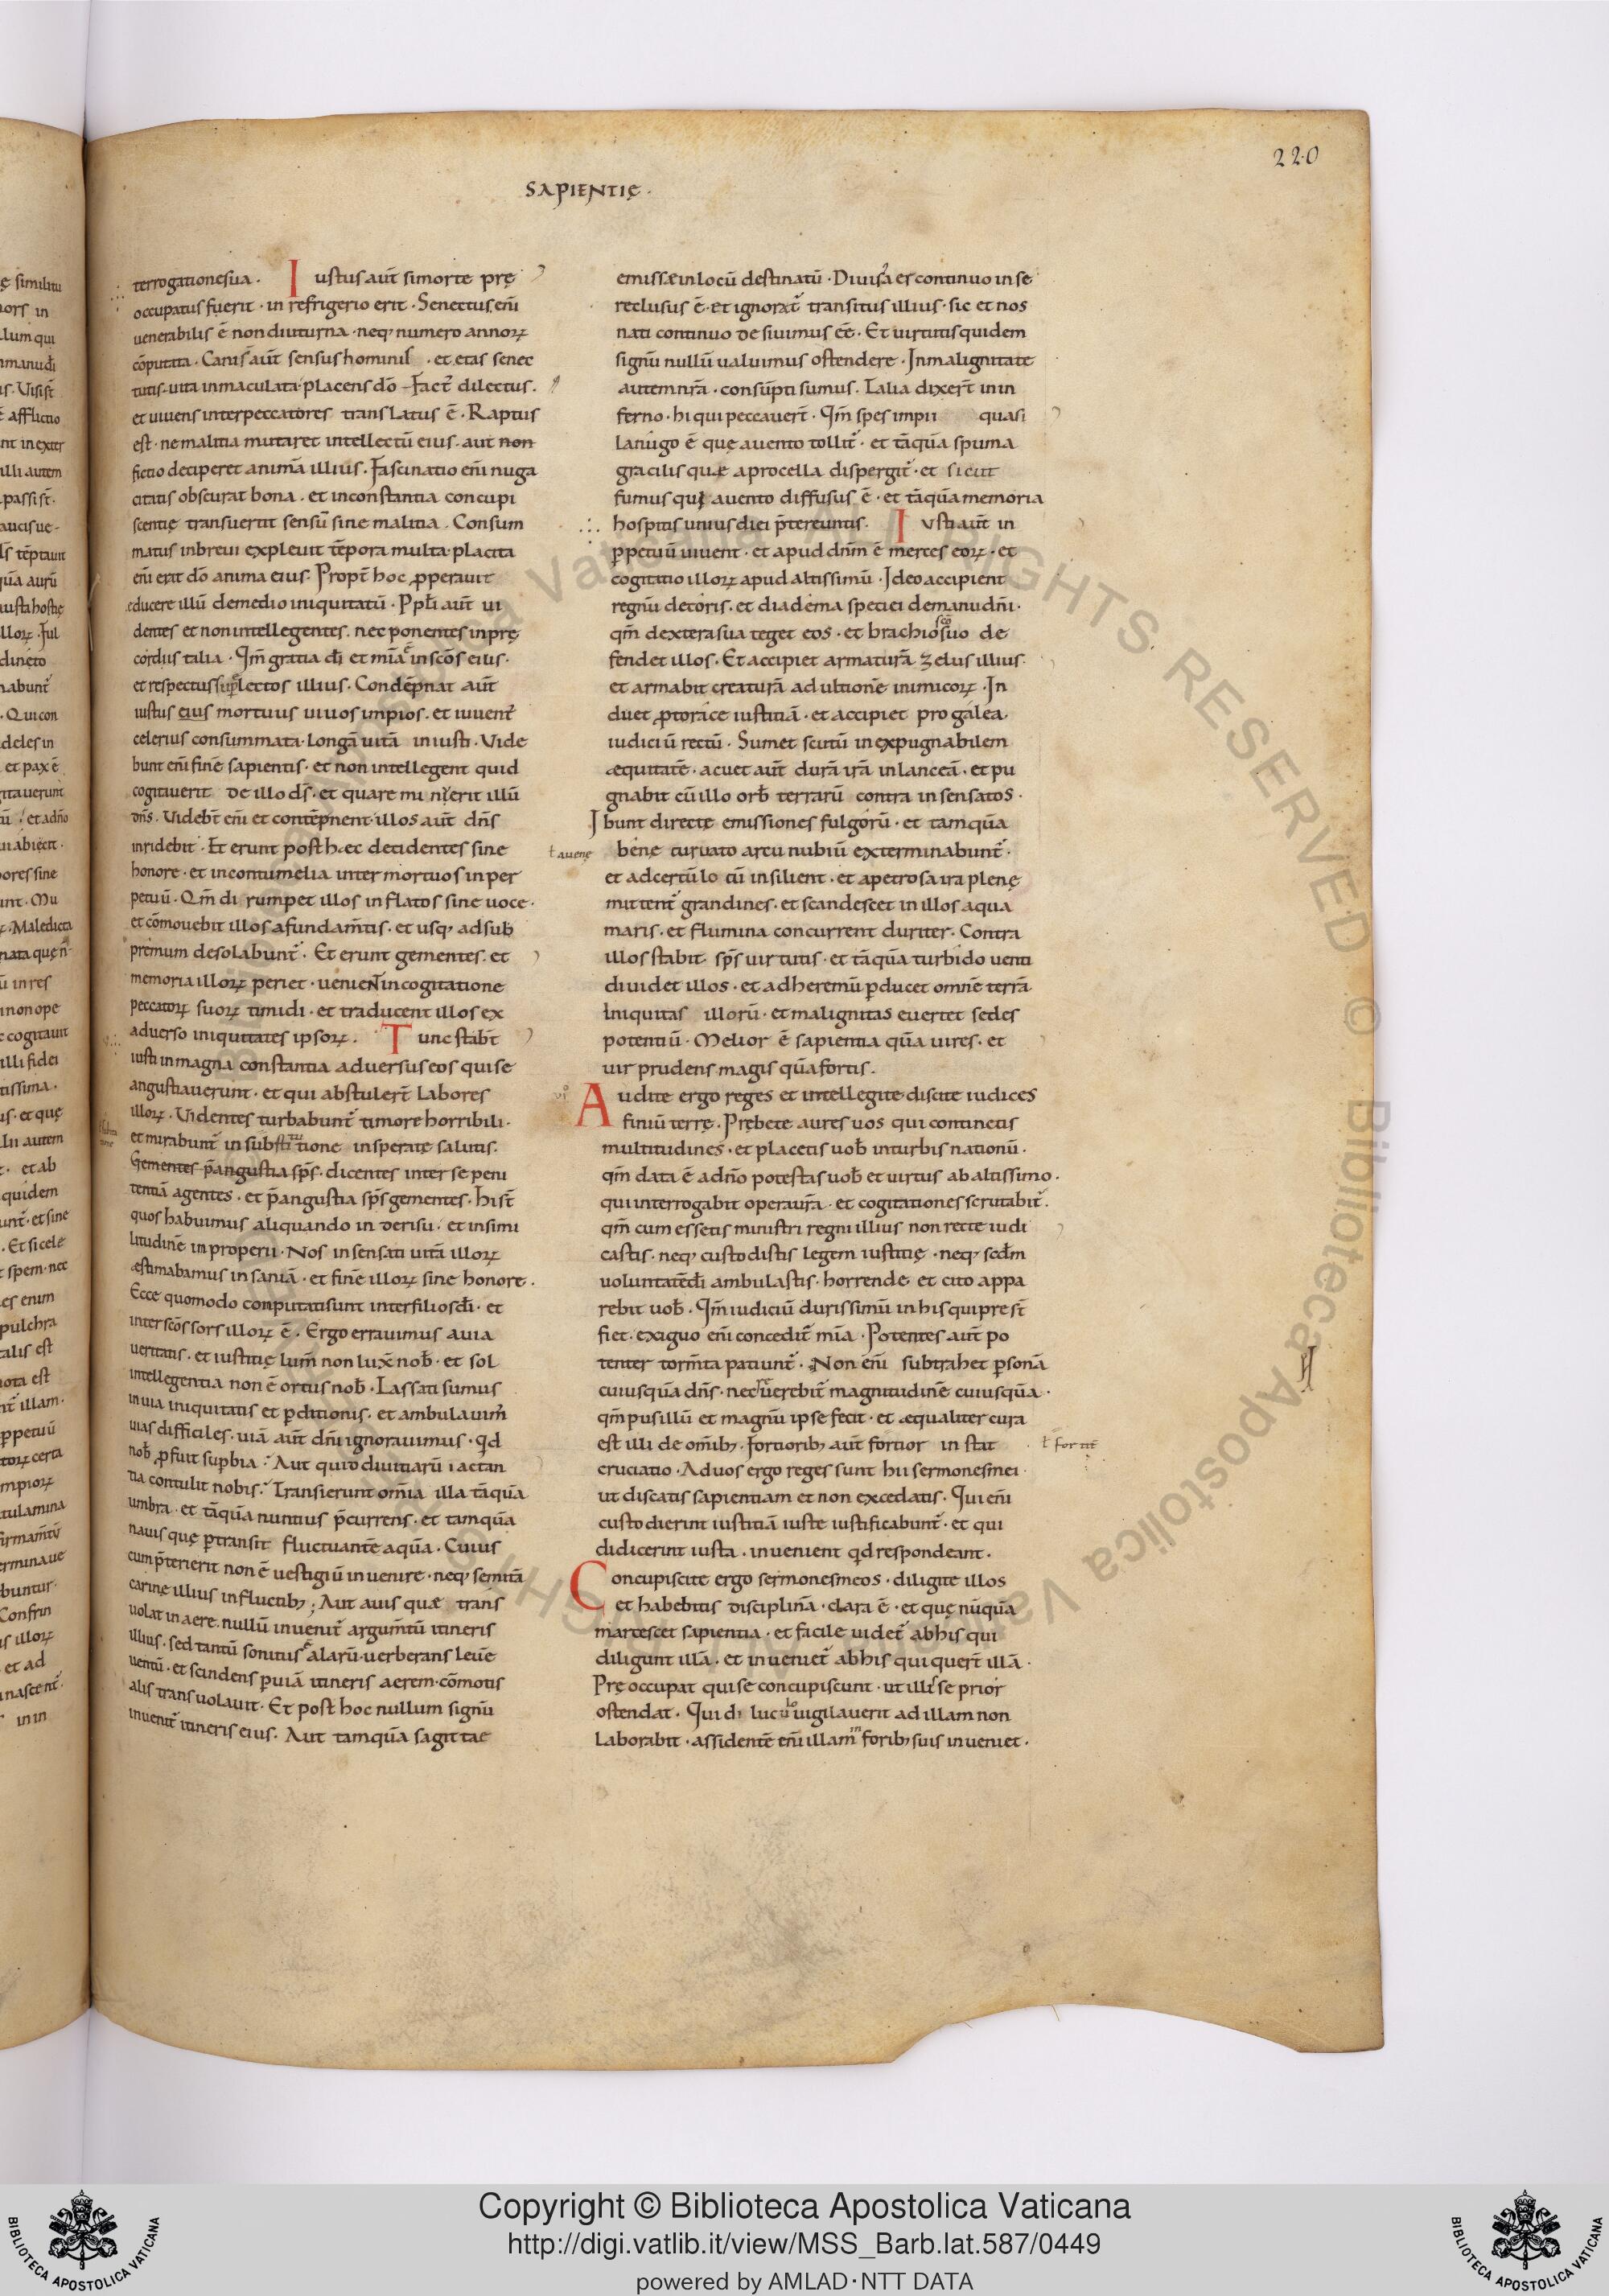 220
SAPIENTIĘ ·
terrogatione sua · Iustus aut̄ si morte prę
occupatus fuerit · in refrigerio erit · Senectus eni̅
uenerabilis ē non diuturna · neq; numero annoꝝ
cōputata · Canis aut̄ sensus hominis · et etas senec
tutis · uita inmaculata · placens dō fact᷑ dilectus ·
et uiuens inter peccatores translatus ē · Raptus
est · ne malitia mutaret intellectū eius · aut non
fictio deciperet animā illius · Fascinatio eni̅ nuga
citatis obscurat bona · et inconstantia concupi
scentię transuertit sensū sine malitia · Consum
matus in breui expleuit tēpora multa · placita
eni̅ erat dō anima eius · Propt̄ hoc ꝓperauit
educere illū de medio iniquitatū · Ppl̄i aut̄ ui
dentes et non intellegentes · nec ponentes in prę
cordiis talia · Qm̄ gratia dī et mīa in scōs eius ·
et respectus sup̄ lectos illius · Condēpnat aut̄
iustus eius mortuus uiuos impios · et iuuent᷑
celerius consummata · longā uitā iniusti · Vide
bunt eni̅ finē sapientis · et non intellegent quid
cogitauerit de illo ds̄ · et quare minuerit illū
dn̄s · Videbt̄ eni̅ et contēpnent · illos aut̄ dn̄s
inridebit · Et erunt post hæc decidentes sine
honore · et in contumelia inter mortuos in per
petuū · Qm̄ dirumpet illos inflatos sine uoce ·
et cōmouebit illos a fundam̄tis · et usq; ad sub
premum desolabunt᷑ · Et erunt gementes · et
memoria illoꝝ periet · uenient in cogitatione
peccatoꝝ suoꝝ timidi · et traducent illos ex
aduerso iniquitates ipsoꝝ · Tunc stabt̄
iusti in magna constantia aduersus eos qui se
angustiauerunt · et qui abstulert̄ labores
illoꝝ · Videntes turbabunt᷑ timore horribili ·
et mirabunt᷑ in substitutione insperatę salutis ·
Gementes p̄ angustia sp̄s · dicentes inter se peni
tentiā agentes · et p̄ angustia sp̄s gementes · Hi st̄
quos habuimus aliquando in derisu · et in simi
litudinē inproperii · Nos insensati uitā illoꝝ
ęstimabamus insaniā · et finē illoꝝ sine honore ·
Ecce quomodo conputati sunt inter filios dī · et
inter scōs sors illoꝝ ē · Ergo errauimus a uia
ueritatis · et iustitię lum̄ non luxit nob̄ · et sol
intellegentia non ē ortus nob̄ · Lassati sumus
in uia iniquitatis et ꝑditionis · et ambulauim᷒
uias difficiles · uiā aut̄ dn̄i ignorauimus · qd̄
nob̄ ꝓfuit supbia · Aut quid diuitiarū iactan
tia contulit nobis · Transierunt om̄ia illa tāqūa
umbra · et tāqūa nuntius p̄currens · et tamqūa
nauis quę ꝑtransit fluctuantē aqūa · Cuius
cum p̄terierit non ē uestigiū inuenire · neq; semitā
carinę illius in fluctib; · Aut auis quæ trans
uolat in aere · nullū inuenit᷑ argum̄tū itineris
illius · sed tantū sonitus alarū · uerberans leuē
uentū · et scindens ꝑ uiā itineris aerem · cōmotis
alis transuolauit · Et post hoc nullum signū
inuenit᷑ itineris eius · Aut tamqūa sagittae
emissæ in locū destinatū · Diuisa er continuo in se
reclusus ē · et ignorat᷑ transitus illius · sic et nos
nati continuo desiuimus eē · Et uirtutis quidem
signū nullū ualuimus ostendere · In malignitate
autem nr̄a · consūpti sumus · Talia dixert̄ in in
ferno · hi qui peccauert̄ · Qm̄ spes impii quasi
lanugo ē que a uento tollit᷑ · et tāqūa spuma
gracilis quæ a procella dispergit᷑ · et sicut
fumus qui a uento diffusus ē · et tāqūa memoria
hospitis unius diei p̄tereuntis · Iusti aut̄ in
ꝑpetuū uiuent · et apud dnm̄ ē merces eoꝝ · et
cogitatio illoꝝ apud altissimū · Ideo accipient
regnū decoris · et diadema speciei de manu dn̄i ·
qm̄ dextera sua teget eos · et brachio scō suo de
fendet illos · Et accipiet armaturā zelus illius ·
et armabit creaturā ad ultionē inimicoꝝ · In
duet ꝓ torace iustitiā · et accipiet pro galea ·
iudiciū rectū · Sumet scutū inexpugnabilem
æquitatē · acuet aut̄ durā irā in lanceā · et pu
gnabit cū illo orb̄ terrarū contra insensatos ·
Ibunt directę emissiones fulgorū · et tamqūa
ł a uenę
bene curuato arcu nubiū exterminabunt᷑ ·
et ad certū locū insilient · et a petrosa ira plenę
mittent᷑ grandines · et scandescet in illos aqua
maris · et flumina concurrent duriter · Contra
illos stabit sp̄s uirtutis · et tāqūa turbido uenti
diuidet illos · et ad heremū ꝑducet omnē terrā
iniquitas illorū · et malignitas euertet sedes
potentiū · Melior ē sapientia qūa uires · et
uir prudens magis qūa fortis ·
Audite ergo reges et intellegite discite iudices
finiū terrę · Prębete aures uos qui continetis
multitudines · et placetis uob̄ in turbis nationū ·
qm̄ data ē a dn̄o potestas uob̄ et uirtus ab altissimo ·
qui interrogabit opera ur̄a · et cogitationes scrutabit᷑ ·
qm̄ cum essetis ministri regni illius non recte iudi
castis · neq; custodistis legem iustitię · neq; scdm̄
uoluntatē dī ambulastis · horrende et cito appa
rebit uob̄ · Qm̄ iudiciū durissimū in his qui pre st̄
fiet · exiguo eni̅ concedit᷑ mīa · Potentes aut̄ po
tenter torm̄ta patiunt᷑ · Non eni̅ subtrahet ꝑsonā
cuiusqūa dn̄s · nec reuerebit᷑ magnitudinē cuiusqūa ·
qm̄ pusillū et magnū ipse fecit · et æqualiter cura
est illi de om̄ib; · Fortiorib; aut̄ fortior instat
cruciatio · Ad uos ergo reges sunt hii sermones mei ·
ut discatis sapientiam et non excedatis · Qui eni̅
custodierint iustitiā iuste iustificabunt᷑ · et qui
didicerint iusta · inuenient qd̄ respondeant ·
Concupiscite ergo sermones meos · diligite illos
et habebitis disciplinā · clara ē · et quę nūqūa
marcescet sapientia · et facile uidet᷑ ab his qui
diligunt illā · et inueniet᷑ ab his qui quert̄ illā ·
Pręoccupat qui se concupiscunt · ut illis se prior
ostendat · Qui di lucūlo uigilauerit ad illam non
laborabit · assidentē eni̅ illam in forib; suis inueniet ·
Copyright © Biblioteca Apostolica Vaticana
http://digi.vatlib.it/view/MSS_Barb.lat.587/0449
powered by AMLAD·NTT DATA
BIBLIOTECA APOSTOLICA VATICANA
BIBLIOTECA APOSTOLICA VATICANA